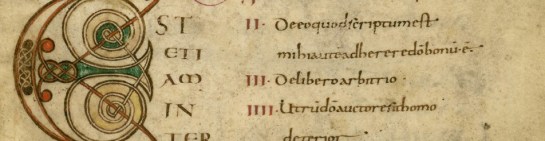 EST
ETI
AM
IN
TER
II· De eo quod scriptum est
mihi autē adherere dō bonū·ē·
III· De libero arbitrio·
IIII· Utrū dō auctore sit homo
deterior